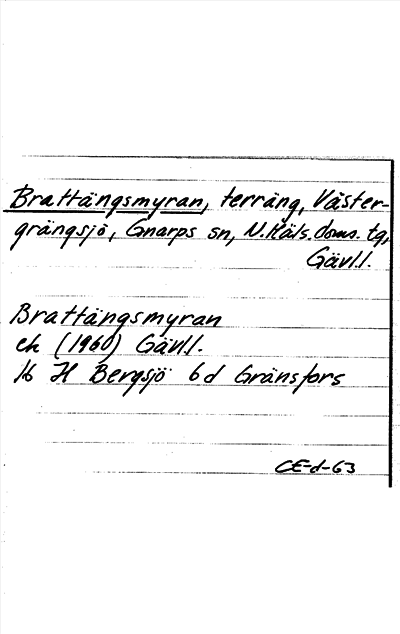 Brattängsmyran, terräng, Väster-
grängsjö, Gnarps sn, N. Häls. doms. tg,
Gävl.l.
Brattängsmyran
ek (1960) Gävl.l.
16 H Bergsjö 6d Gränsfors
CE-d-63